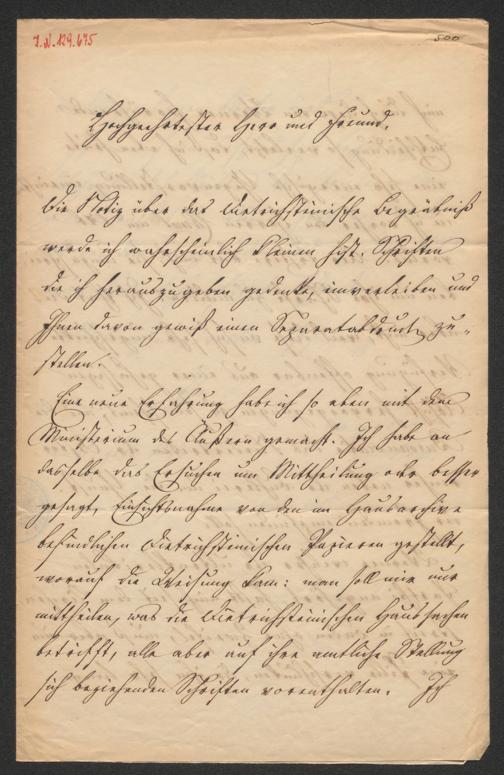 I.N. 129.675
500
Hochgeehrtester Herr und Freund.
Die Notiz über das Dietrichsteinische Begräbniß
werde ich wahrscheinlich kleinen hist. Schriften
die ich herauszugeben gedenke, einverleiben und
Ihnen davon gewiß einen Separatabdruck zu-
stellen.
Eine neue Erfahrung habe ich so eben mit dem
Ministerium des Äußern gemacht. Ich habe an
dasselbe das Ersuchen um Mittheilung oder besser
gesagt, Einsichtsnahme von den im Hausarchive
befindlichen Dietrichsteinischen Papieren gestellt,
worauf die Weisung kam: man soll mir nur
mittheilen, was die Dietrichsteinischen Haussachen
betrifft, alle aber auf ihre amtliche Stellung
sich beziehenden Schriften vorenthalten. Ich